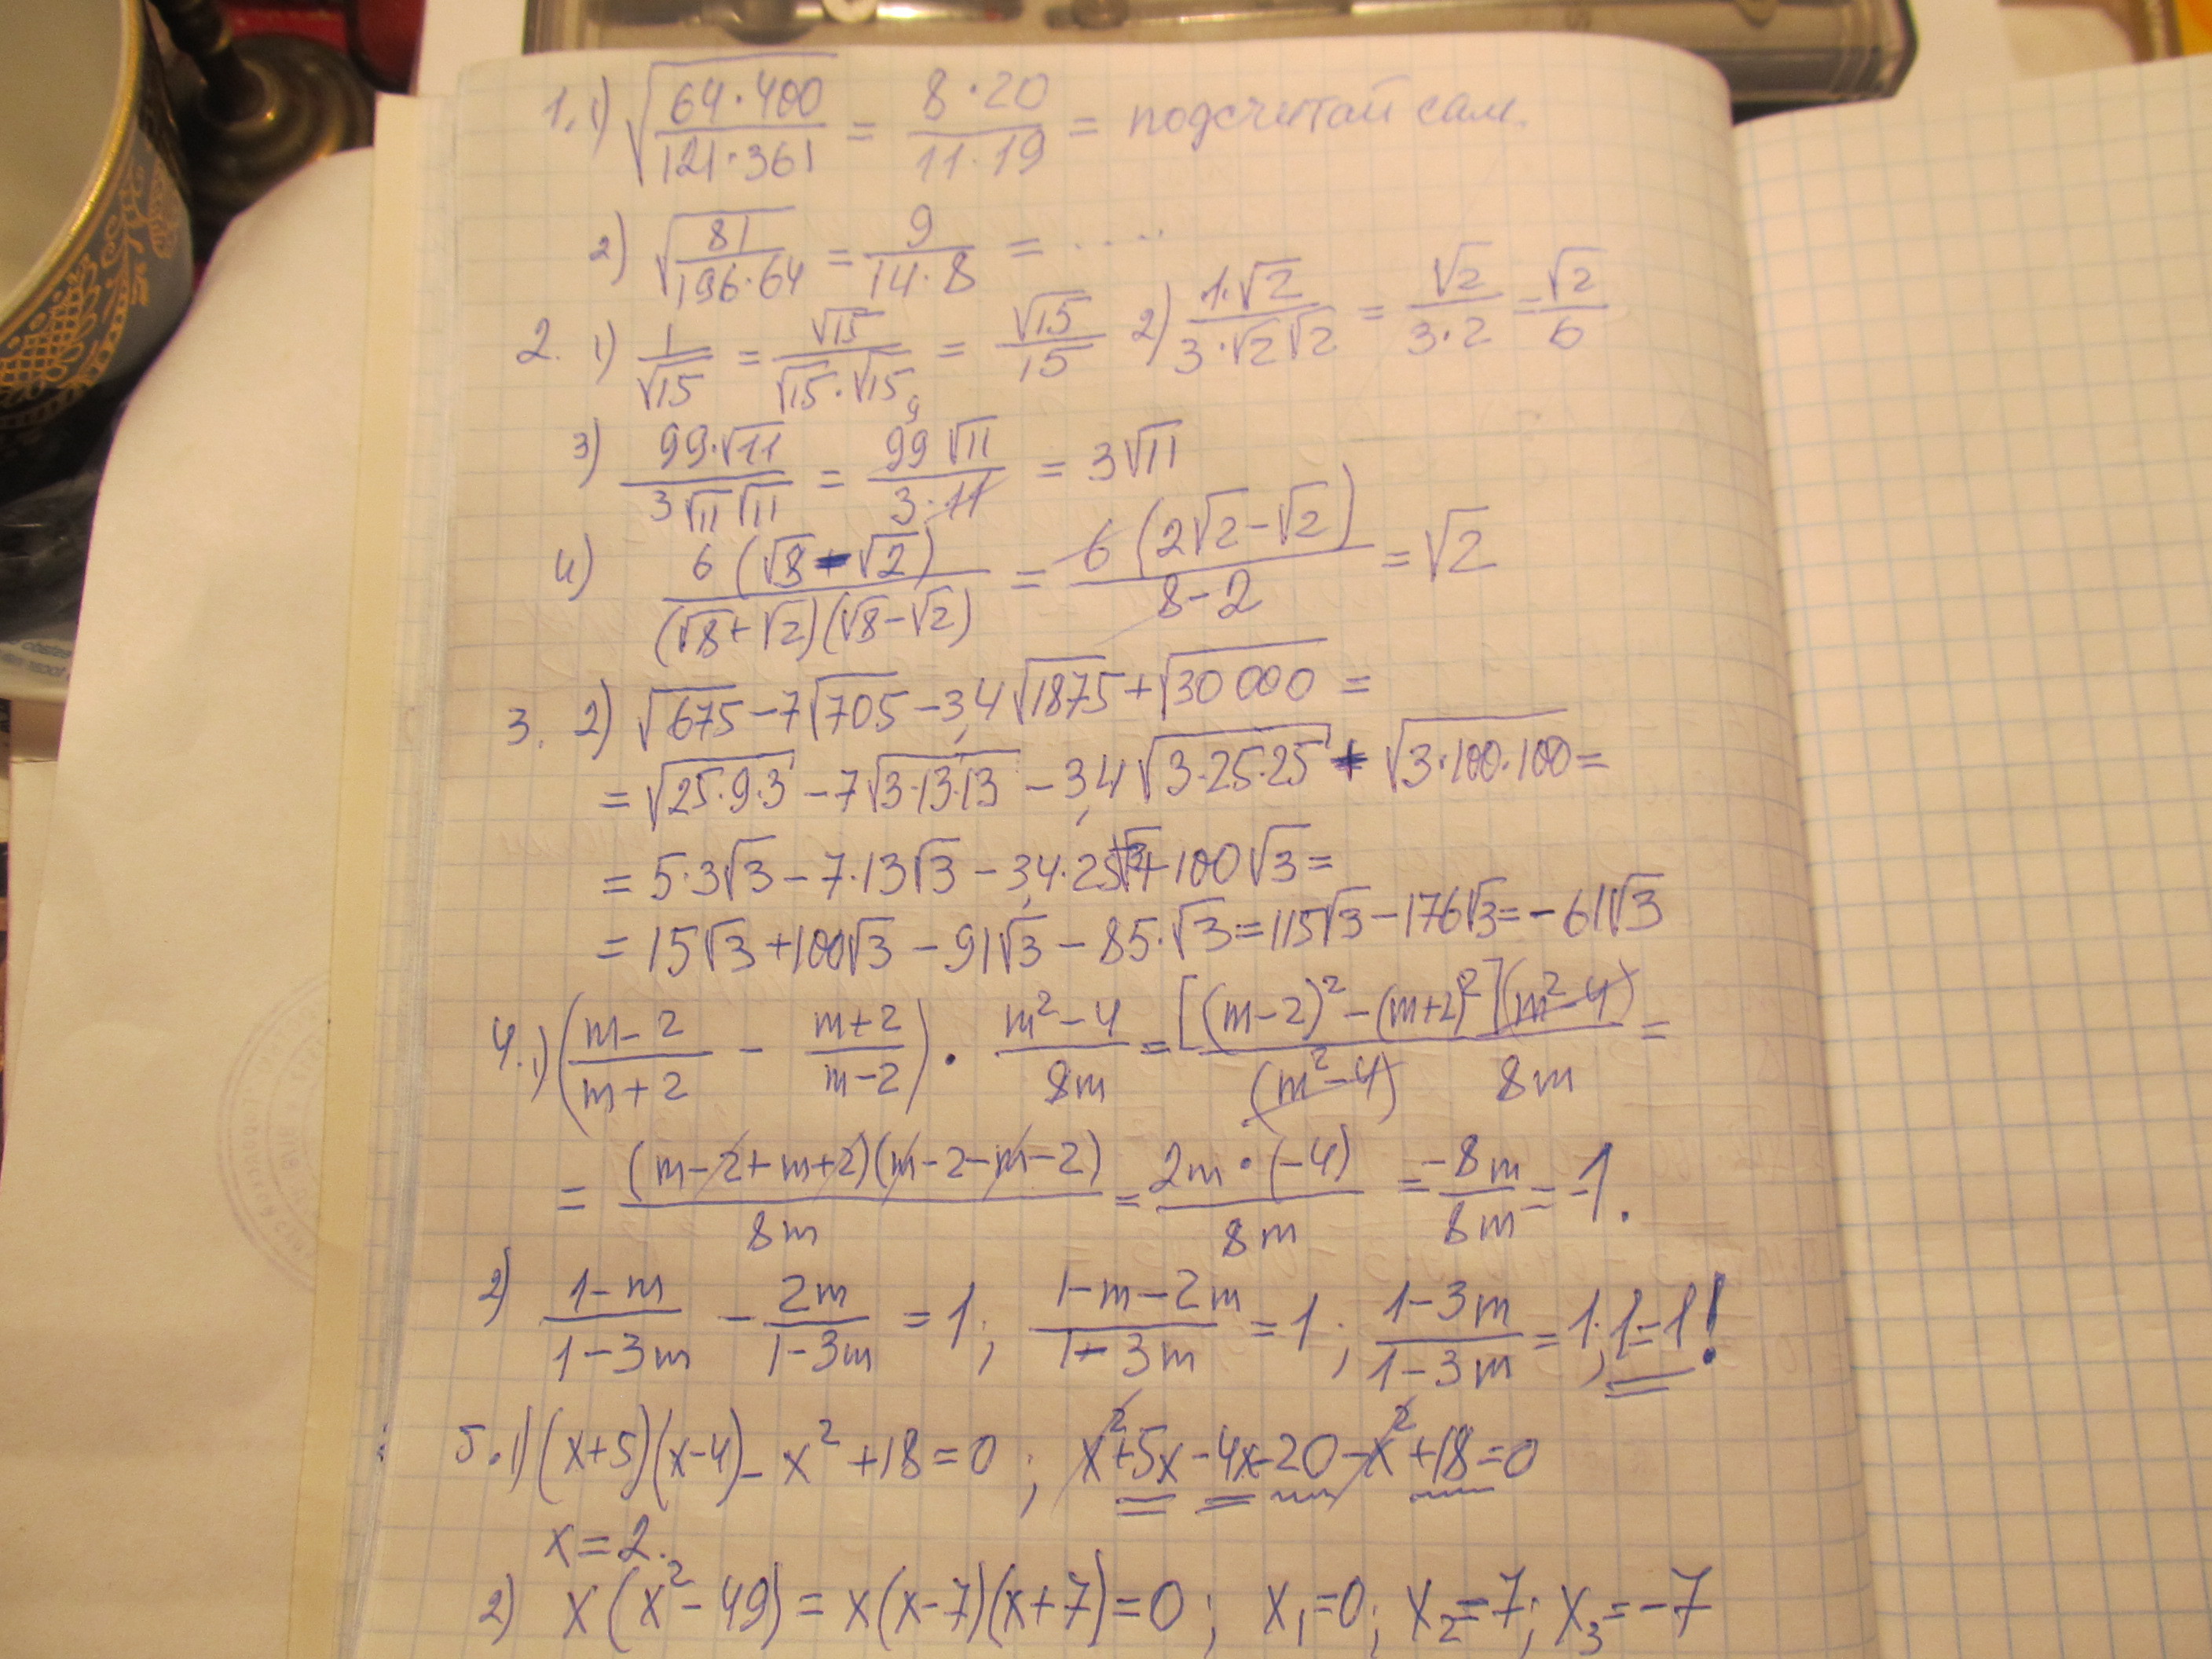 1. 1) √(64·400 / 121·361) = 8·20 / 11·19 = подсчитай сам.
2) √(81 / 196·64) = 9 / 14·8 = .....
2. 1) 1/√15 = √15 / √15·√15 = √15 / 15 2) 1·√2 / 3·√2√2 = √2 / 3·2 = √2 / 6
3) 99·√11 / 3√11√11 = 9 99√11 / 3·11 = 3√11
4) 6(√8-√2) / (√8+√2)(√8-√2) = 6(2√2-√2) / 8-2 = √2
3. 2) √675 - 7√705 - 3,4√1875 + √30000 =
= √25·9·3 - 7√3·13·13 - 3,4√3·25·25 + √3·100·100 =
= 5·3√3 - 7·13√3 - 3,4·25√3 + 100√3 =
= 15√3 + 100√3 - 91√3 - 85·√3 = 115√3 - 176√3 = -61√3
4. 1) (m-2 / m+2 - m+2 / m-2) · m²-4 / 8m = [(m-2)² - (m+2)²](m²-4) / (m²-4) 8m =
= (m-2+m+2)(m-2-m-2) / 8m = 2m·(-4) / 8m = -8m / 8m = -1.
2) 1-m / 1-3m - 2m / 1-3m = 1; 1-m-2m / 1-3m = 1; 1-3m / 1-3m = 1; 1=1!
5. 1) (x+5)(x-4) - x² + 18 = 0; x²+5x-4x-20-x²+18=0
x = 2.
2) x(x²-49) = x(x-7)(x+7) = 0; x₁=0; x₂=7; x₃=-7